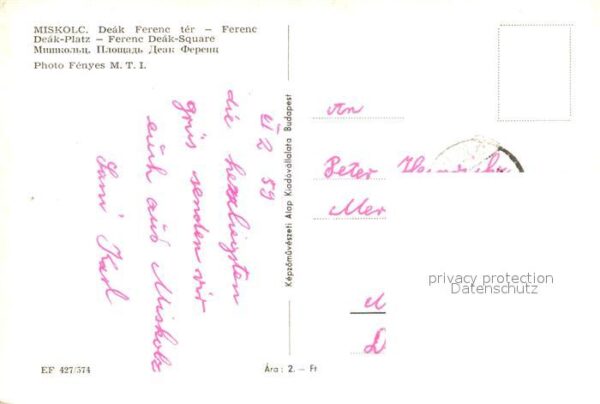 MISKOLC. Deák Ferenc tér – Ferenc
Deák-Platz – Ferenc Deák-Square
Мишкольц. Площадь Деак Ференц
Photo Fényes M. T. I.
2 59
die herzleigsten
grüs senden wir
euch aus Miskolz
Karl
Képzőművészeti Alap Kiadóvállalata Budapest
An
Peter
Mer
privacy protection
Datenschutz
D
EF 427/574
Ára: 2.– Ft